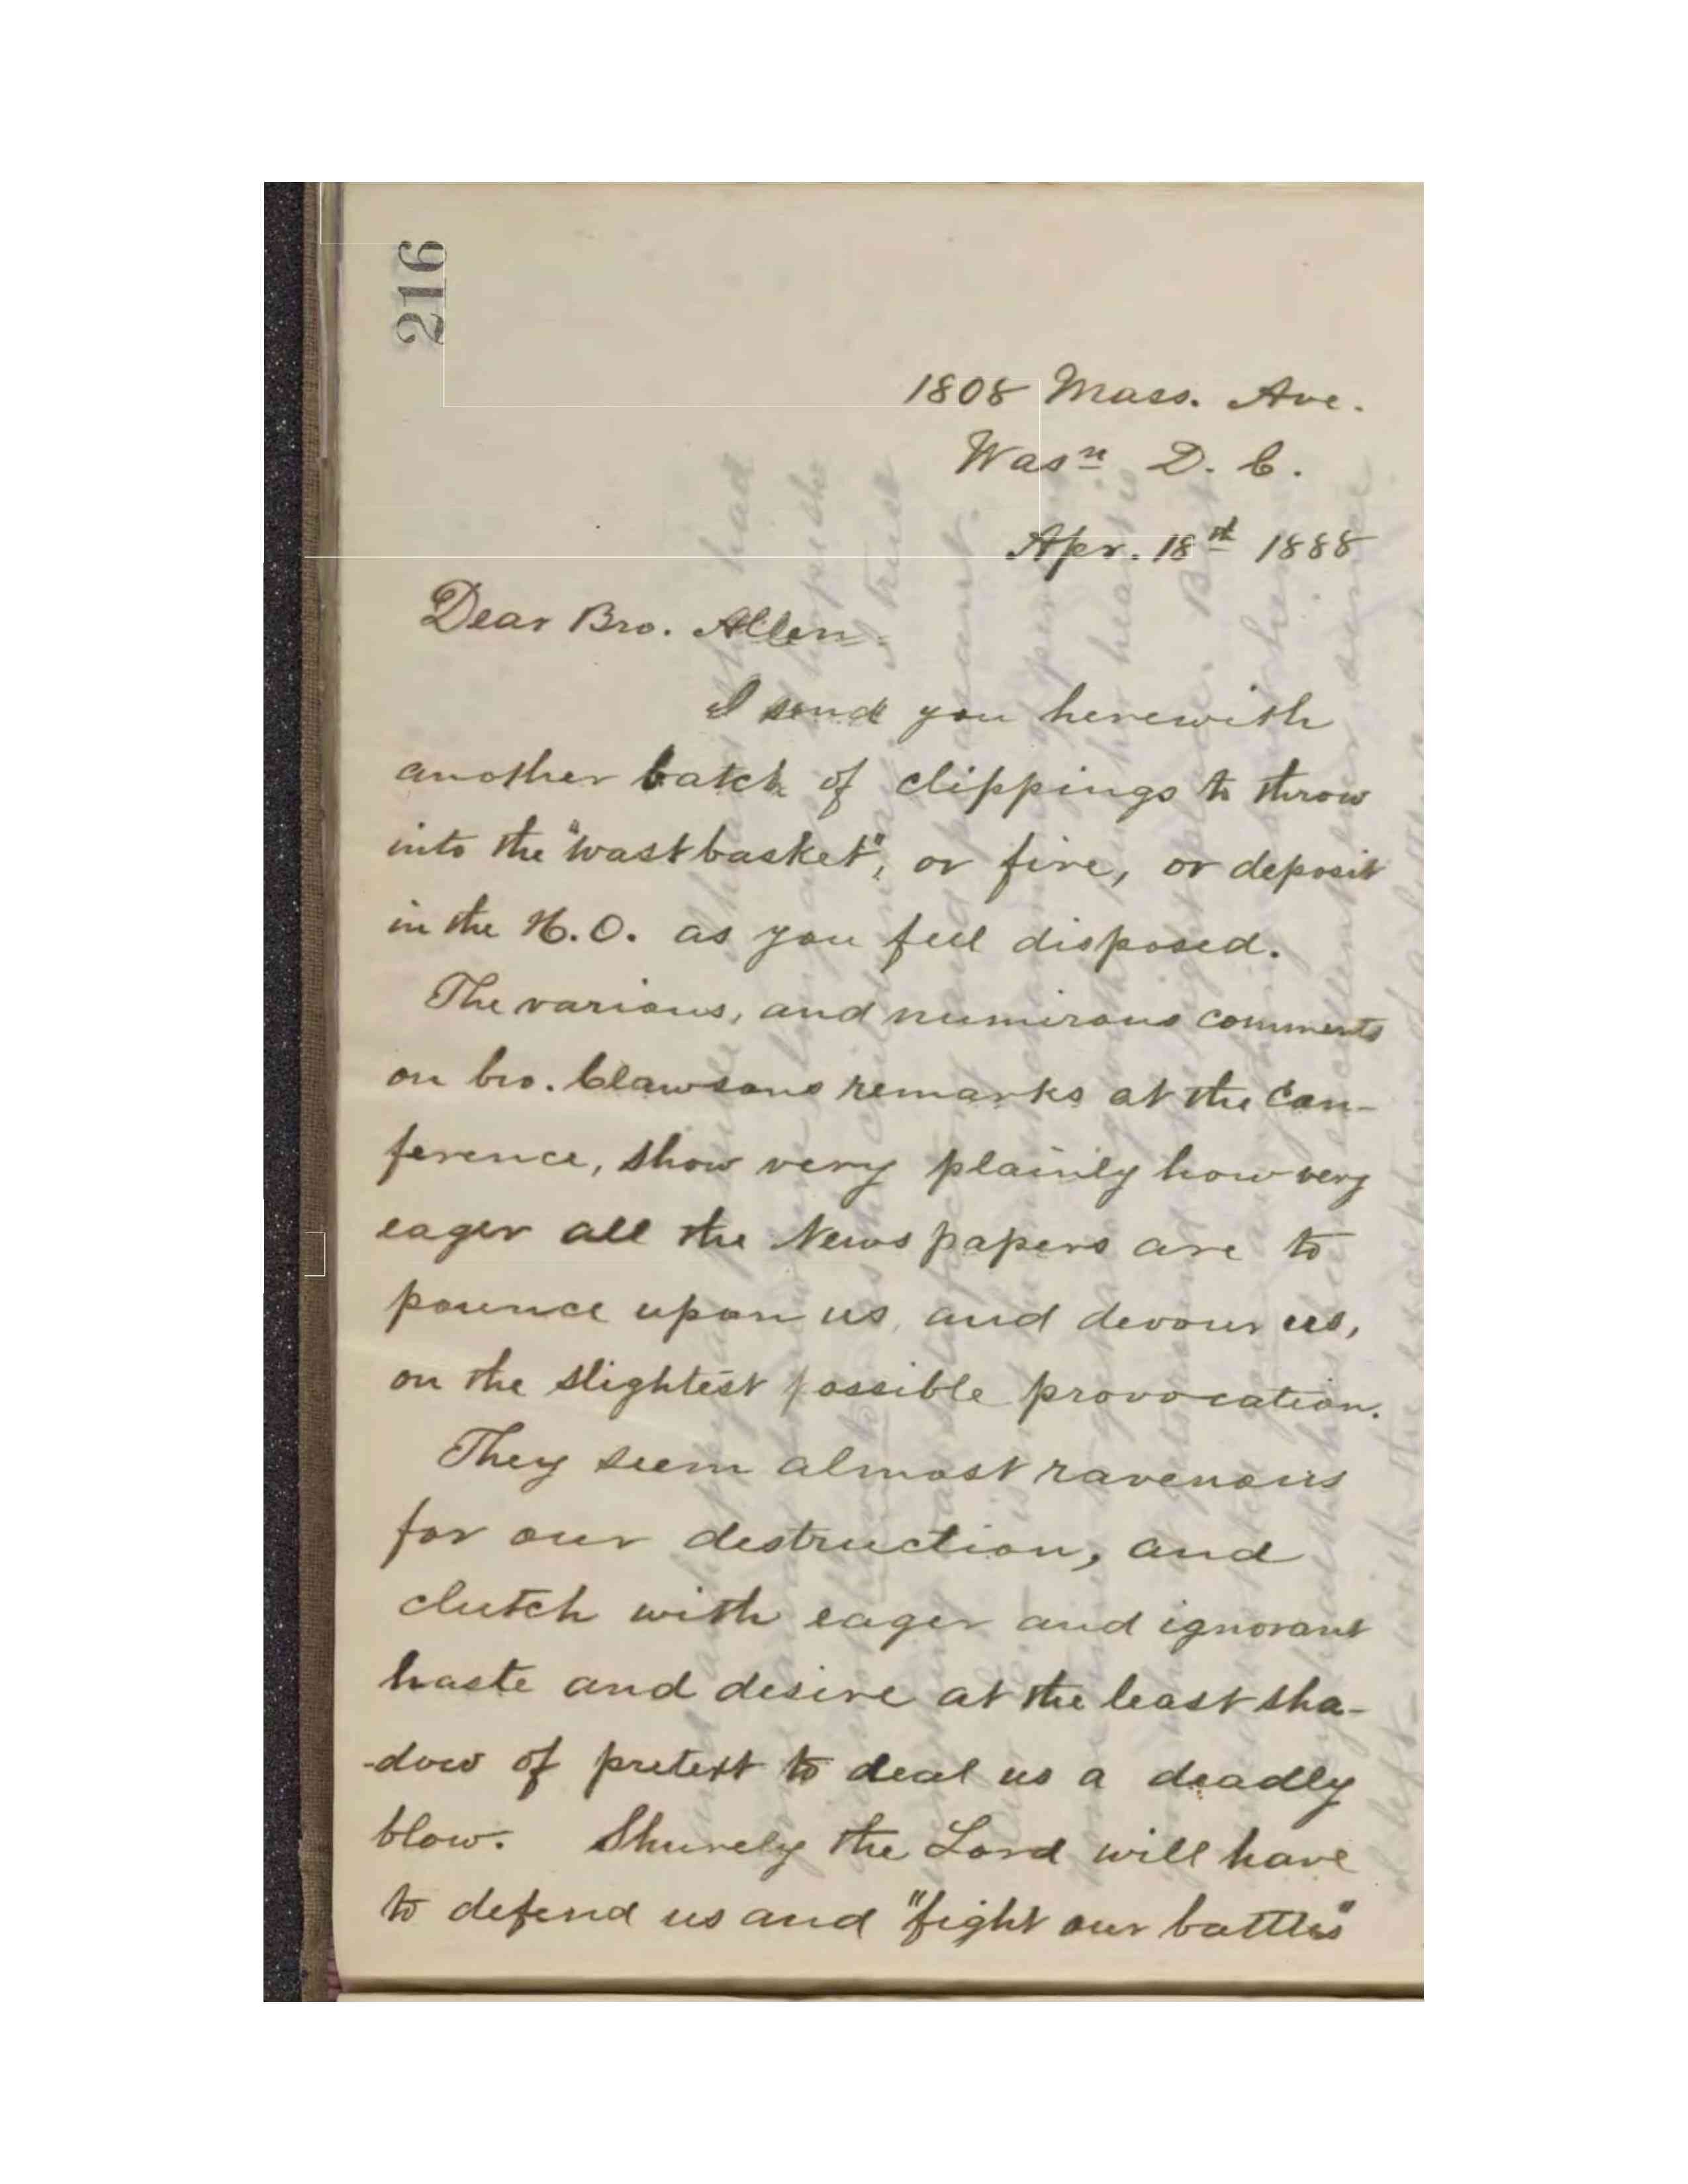 216
1808 Mass. Ave.
Wasn D. C.
Apr. 18th 1888
Dear Bro. Allen.
I send you herewith
another batch of clippings to throw
into the "wastbasket", or fire, or deposit
in the H.O. as you feel disposed.
The various, and numirous comments
on bro. Clawsons remarks at the Con-
ference, show very plainly how very
eager all the News papers are to
pounce upon us, and devour us,
on the slightest possible provocation.
They seem almost ravenous
for our destruction, and
clutch with eager and ignorant
haste and desire at the least sha-
-dow of pretext to deal us a deadly
blow. Shurely the Lord will have
to defend us and "fight our battles"